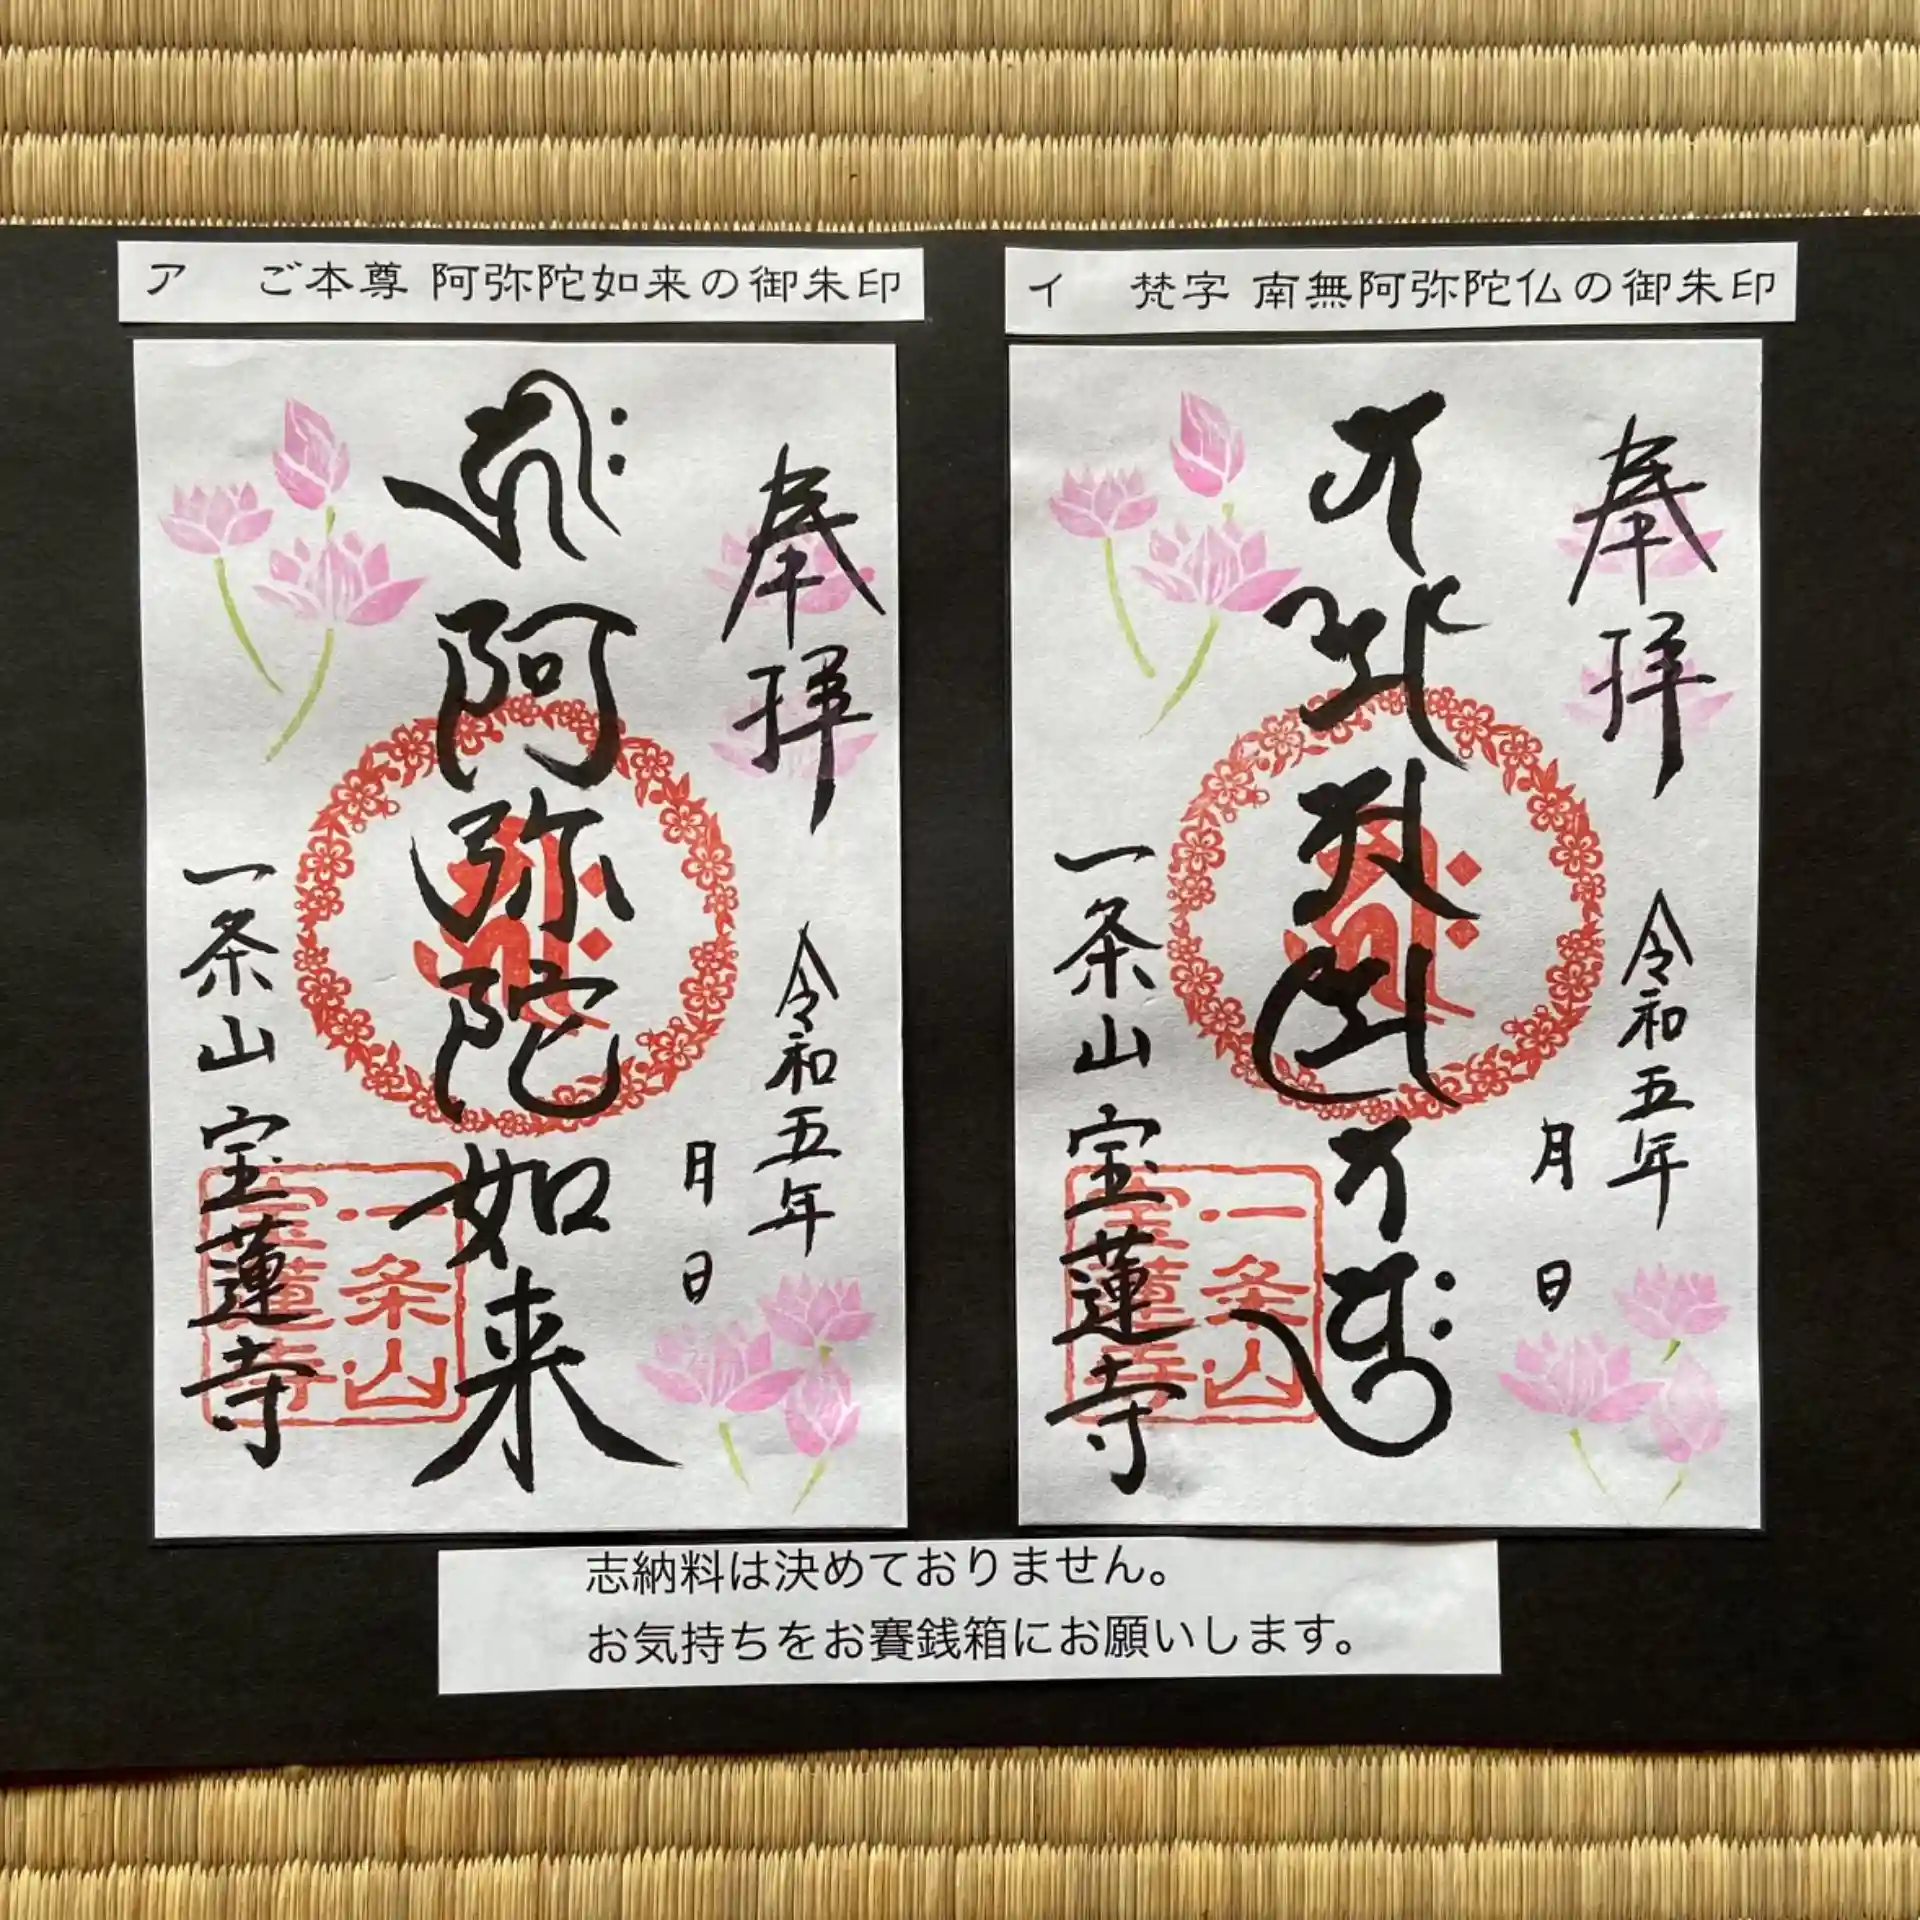 ア ご本尊 阿弥陀如来の御朱印
奉拝
令和五年
月 日
阿弥陀如来
一条山 宝蓮寺
一条山
宝蓮寺
イ 梵字 南無阿弥陀仏の御朱印
奉拝
令和五年
月 日
一条山 宝蓮寺
一条山
宝蓮寺
志納料は決めておりません。
お気持ちをお賽銭箱にお願いします。